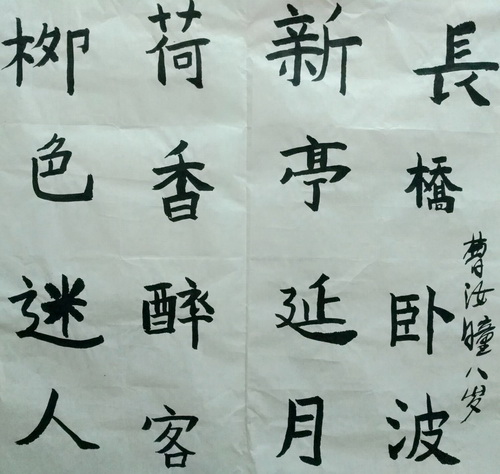 長橋卧波
新亭延月
荷香醉客
柳色迷人
曹汝瞳八岁